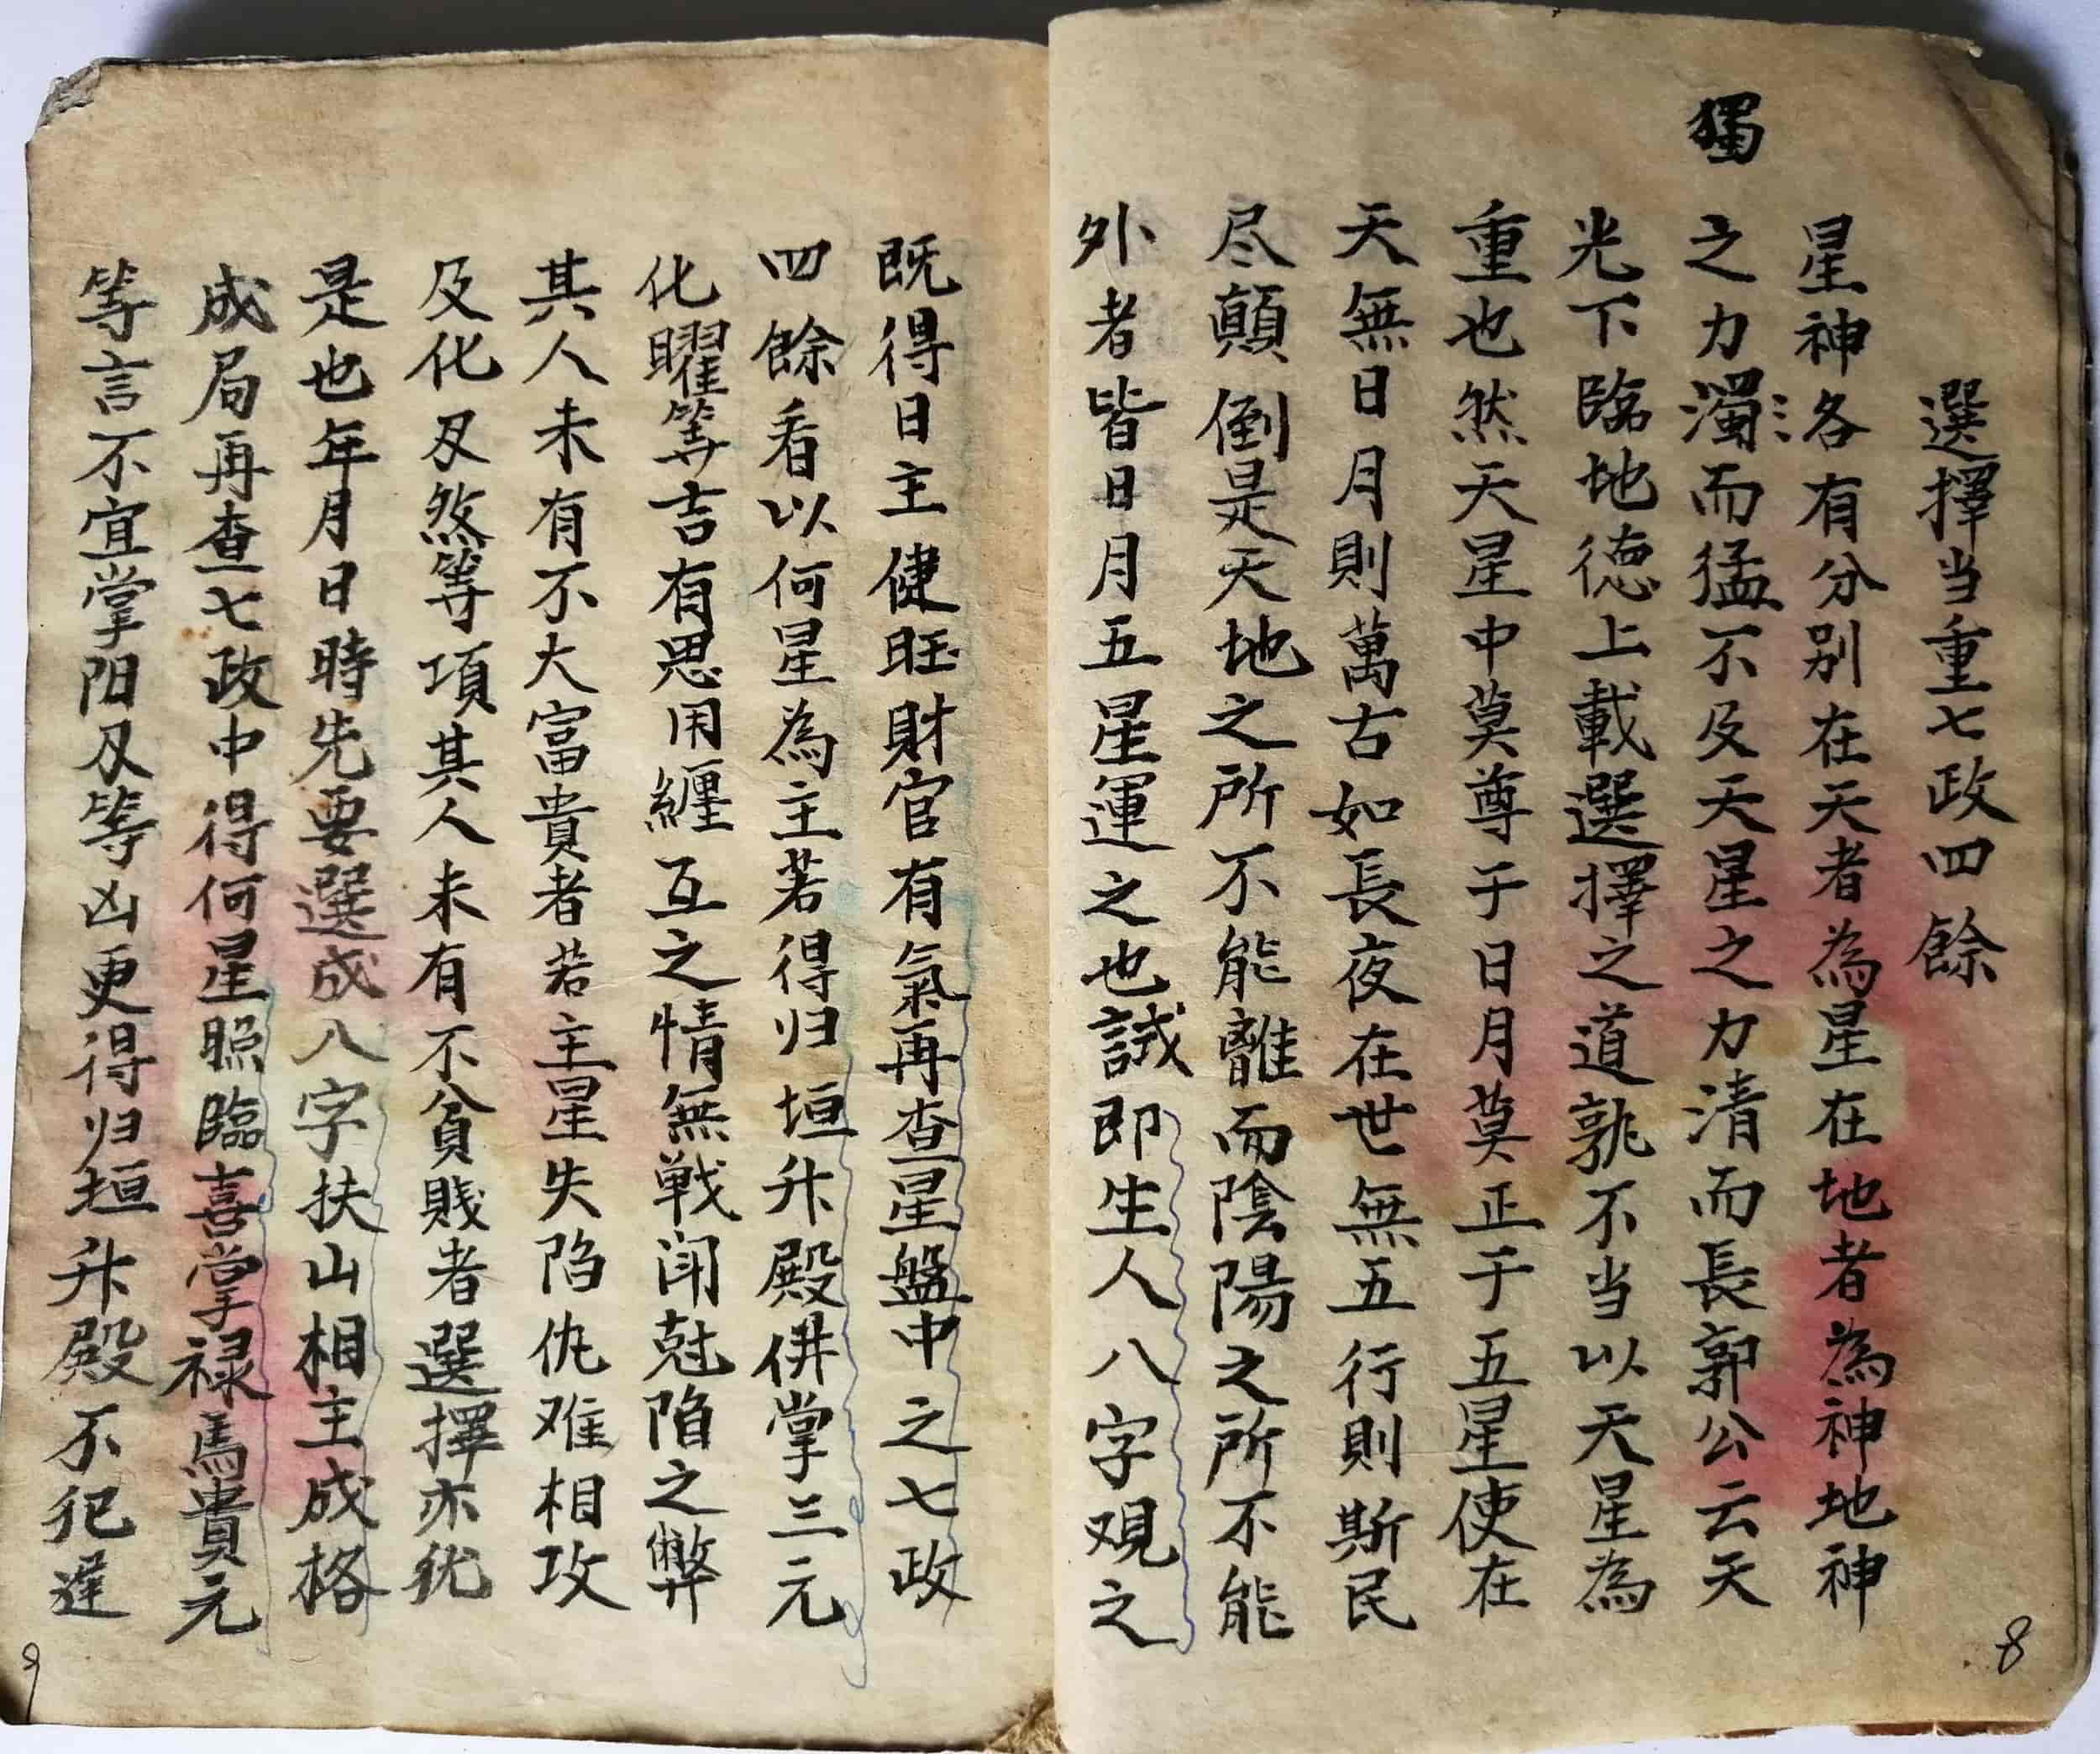 選擇当重七政四餘
星神各有分别在天者為星在地者為神地神
獨
之力濁而猛不及天星之力清而長郭公云天
光下臨地德上載選擇之道孰不当以天星為
重也然天星中莫尊于日月莫正于五星使在
天無日月則萬古如長夜在世無五行則斯民
尽顛倒是天地之所不能離而陰陽之所不能
外者皆日月五星運之也誠即生人八字观之
8
既得日主健旺財官有氣再查星盤中之七政
四餘看以何星為主若得归垣升殿併掌三元
化曜等吉有恩用纏互之情無戦闹尅陷之弊
其人未有不大富貴者若主星失陷仇难相攻
及化刃煞等項其人未有不貧賎者選擇亦犹
是也年月日時先要選成八字扶山相主成格
成局再查七政中得何星照臨喜掌禄馬貴元
等言不宜掌阳刃等凶更得归垣升殿不犯遅
9